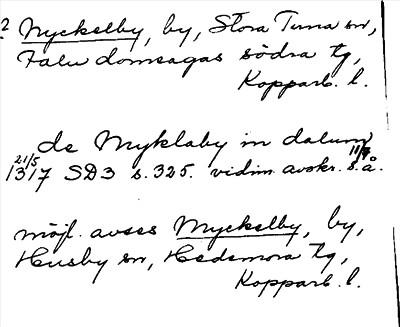 ? Myckelby, by, Stora Tuna sn,
Falu domsagas södra tg,
Kopparb. l.
de Myklaby in dalum
21/5 1317 SD3 s. 325. vidim. avskr. 11/7 s.å.
möjl. avses Myckelby, by,
Husby sn, Hedemora tg,
Kopparb. l.